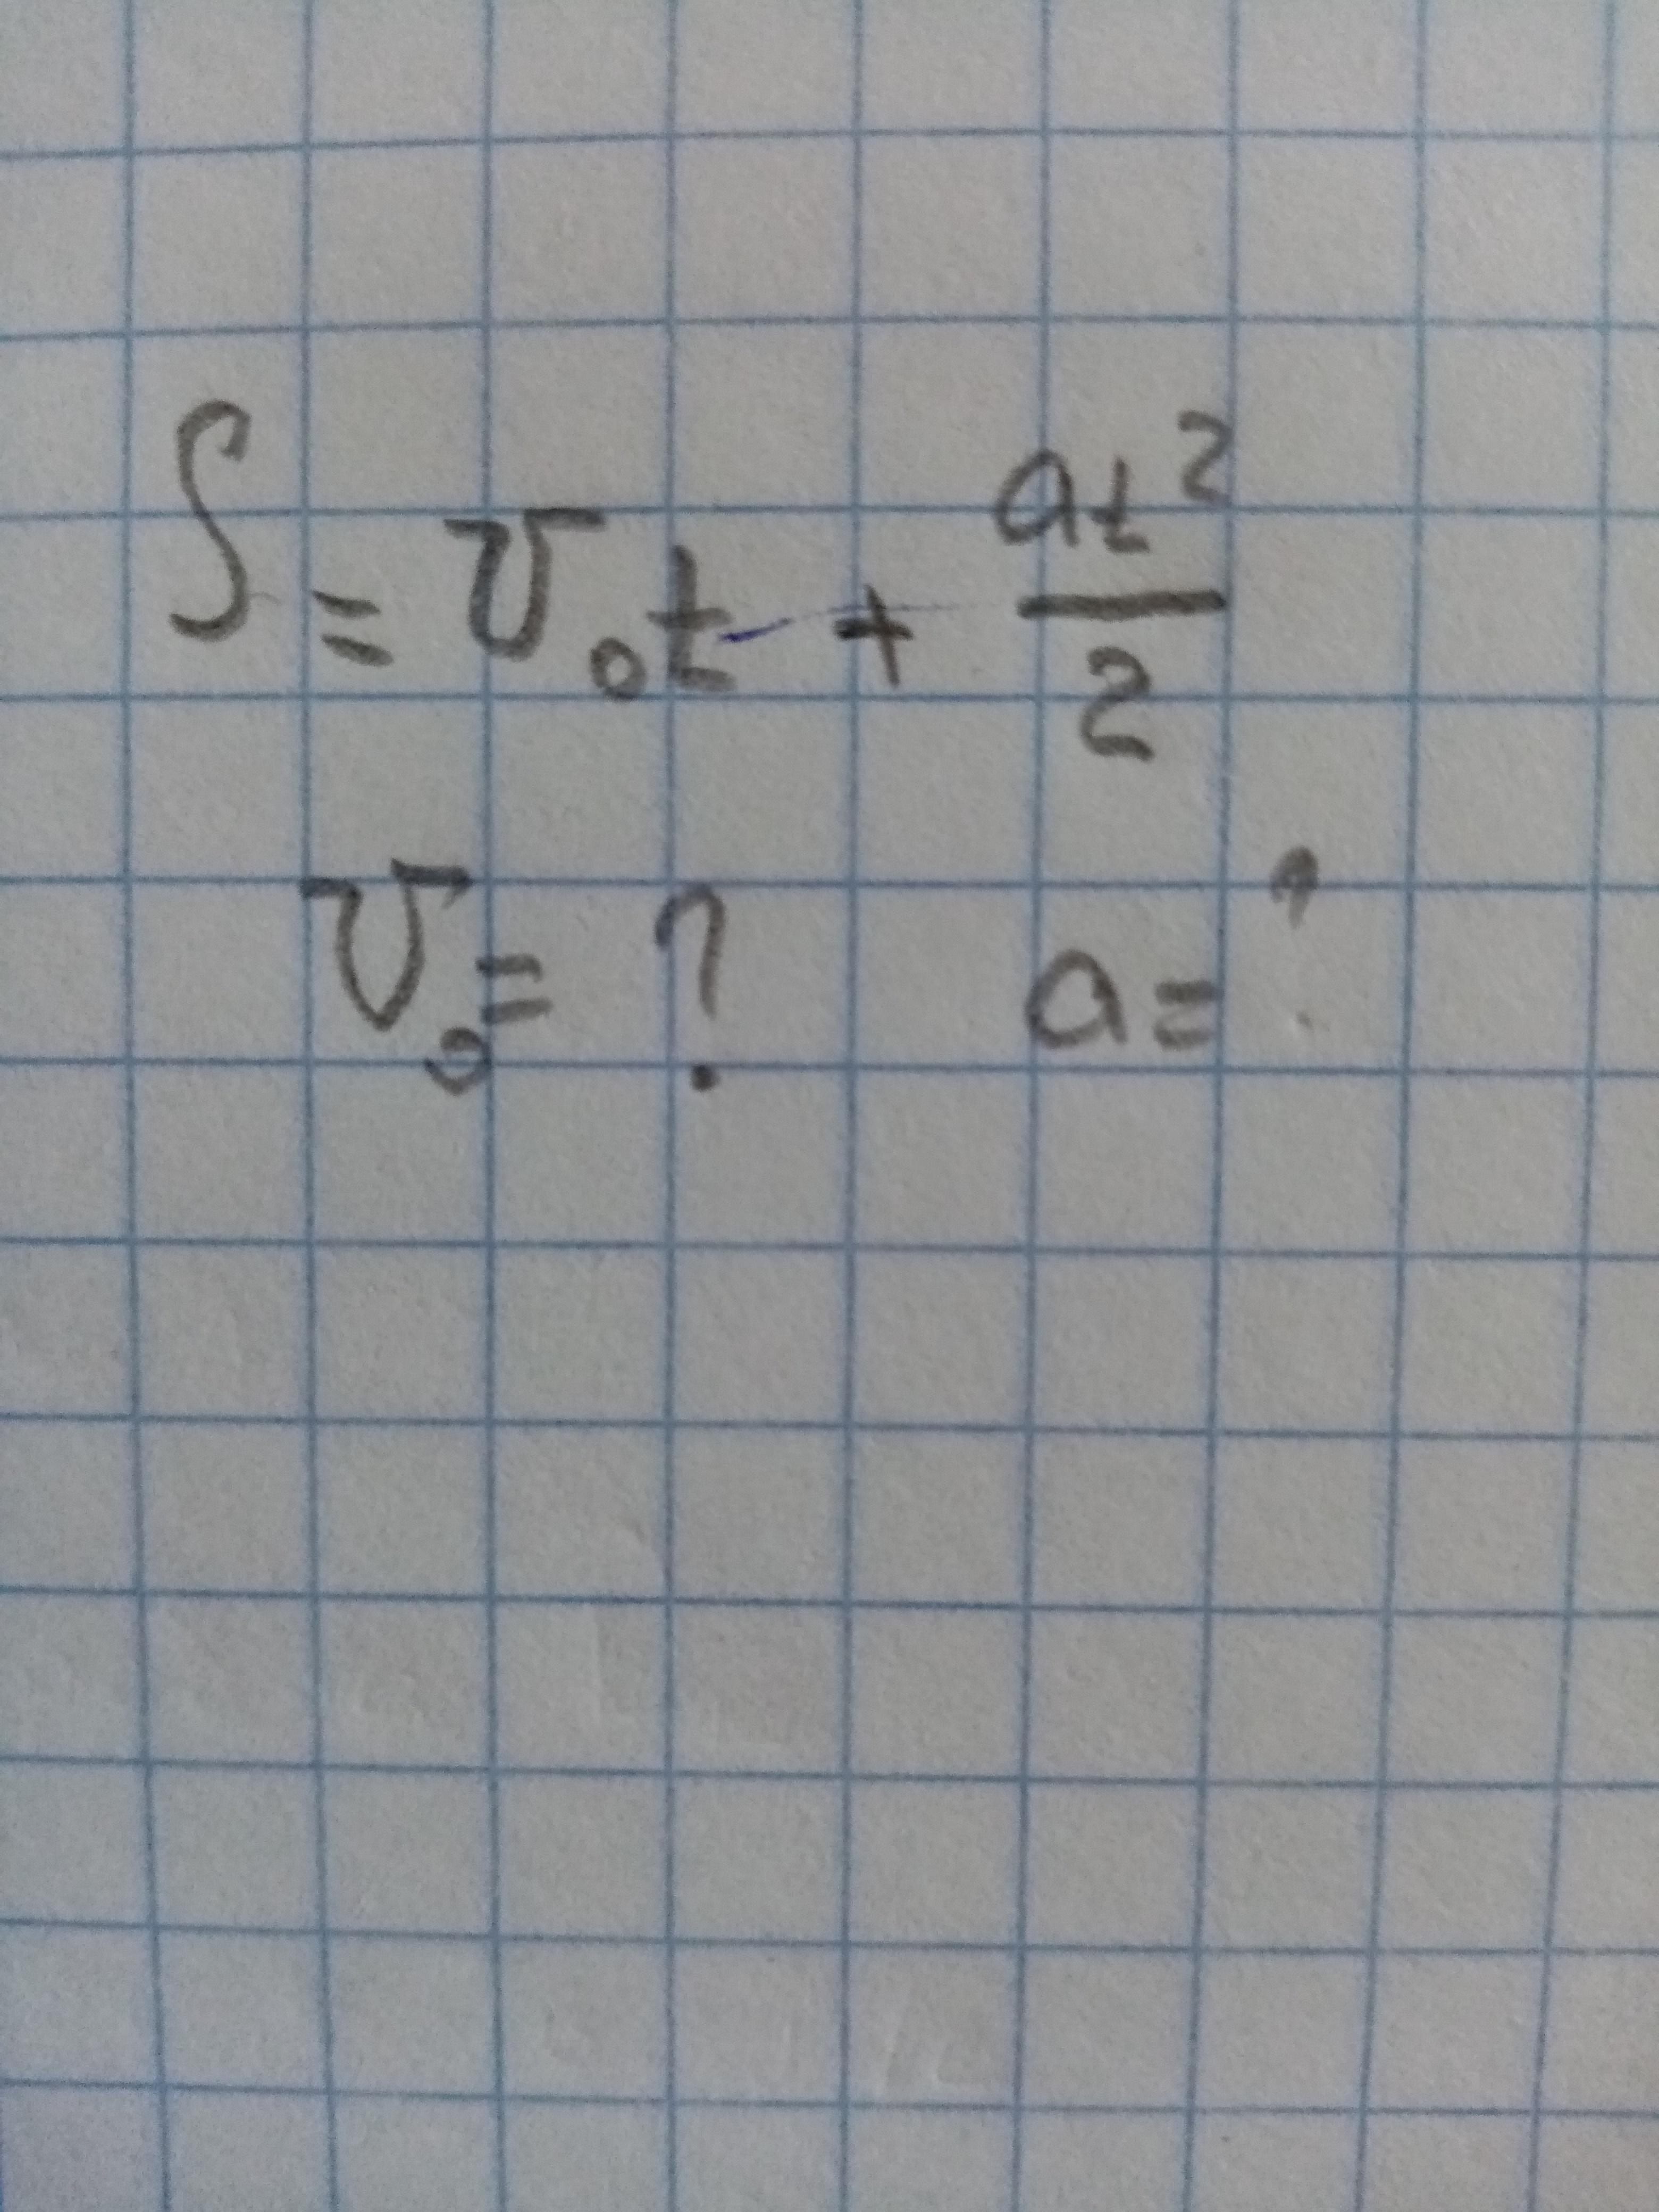 S = v₀t + at²/2
v₀ = ? a = ?